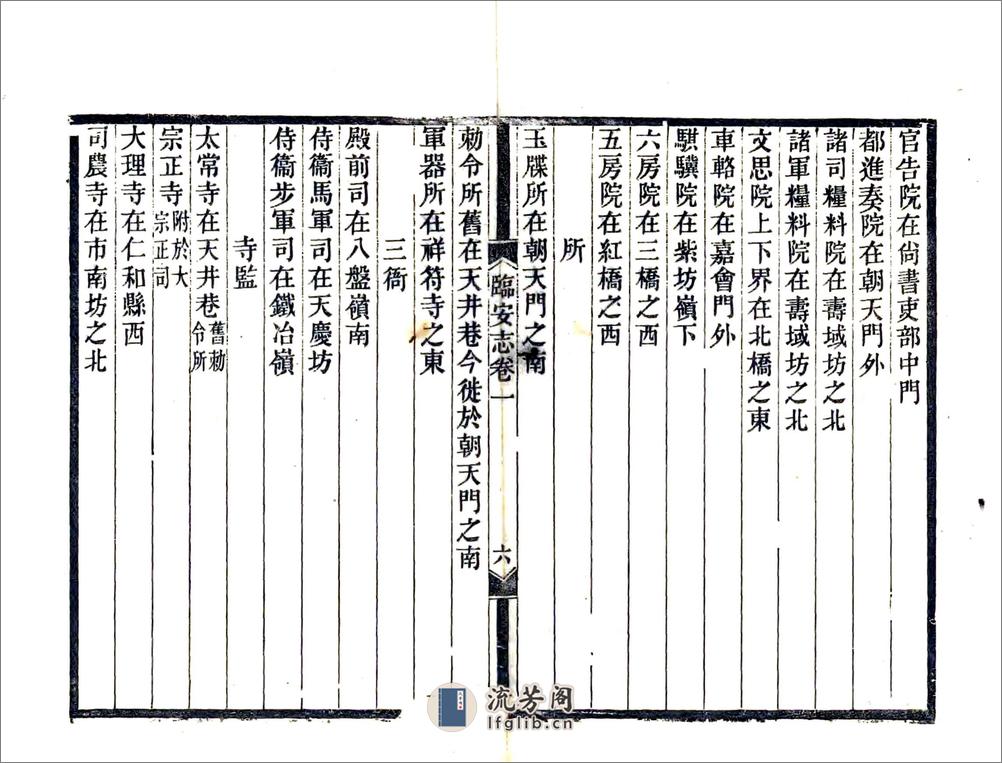 官告院在尚書吏部中門
都進奏院在朝天門外
諸司糧料院在壽域坊之北
諸軍糧料院在壽域坊之北
文思院上下界在北橋之東
車輅院在嘉會門外
騏驥院在紫坊嶺下
六房院在三橋之西
五房院在紅橋之西
所
玉牒所在朝天門之南
臨安志卷一
六
勑令所舊在天井巷今徙於朝天門之南
軍器所在祥符寺之東
三衙
殿前司在八盤嶺南
侍衞馬軍司在天慶坊
侍衞步軍司在鐵冶嶺
寺監
太常寺在天井巷舊勑令所
宗正寺附於大宗正司
大理寺在仁和縣西
司農寺在市南坊之北
流芳阁
lfglib.cn